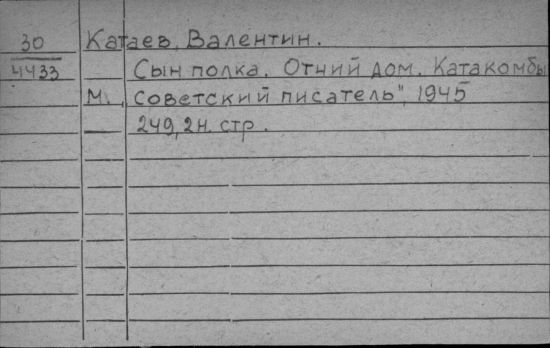 30 Катаев, Валентин.
4433 Сын полка. Отчий дом. Катакомбы
М., Советский писатель", 1945
249, 2 н. стр.